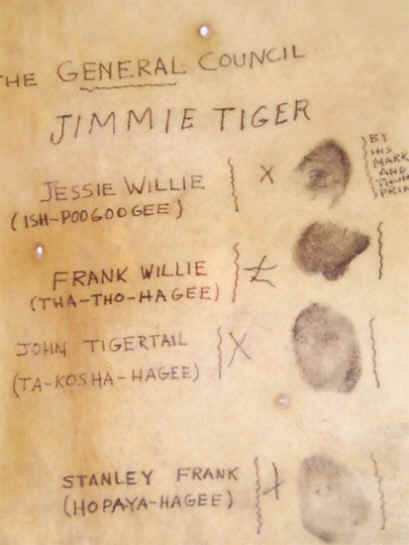 THE GENERAL COUNCIL
JIMMIE TIGER
JESSIE WILLIE
(ISH-POOGOOGEE)
X
BY
HIS
MARK
AND
THUMB
PRINT
FRANK WILLIE
(THA-THO-HAGEE)
JOHN TIGERTAIL
(TA-KOSHA-HAGEE)
X
STANLEY FRANK
(HOPAYA-HAGEE)
X